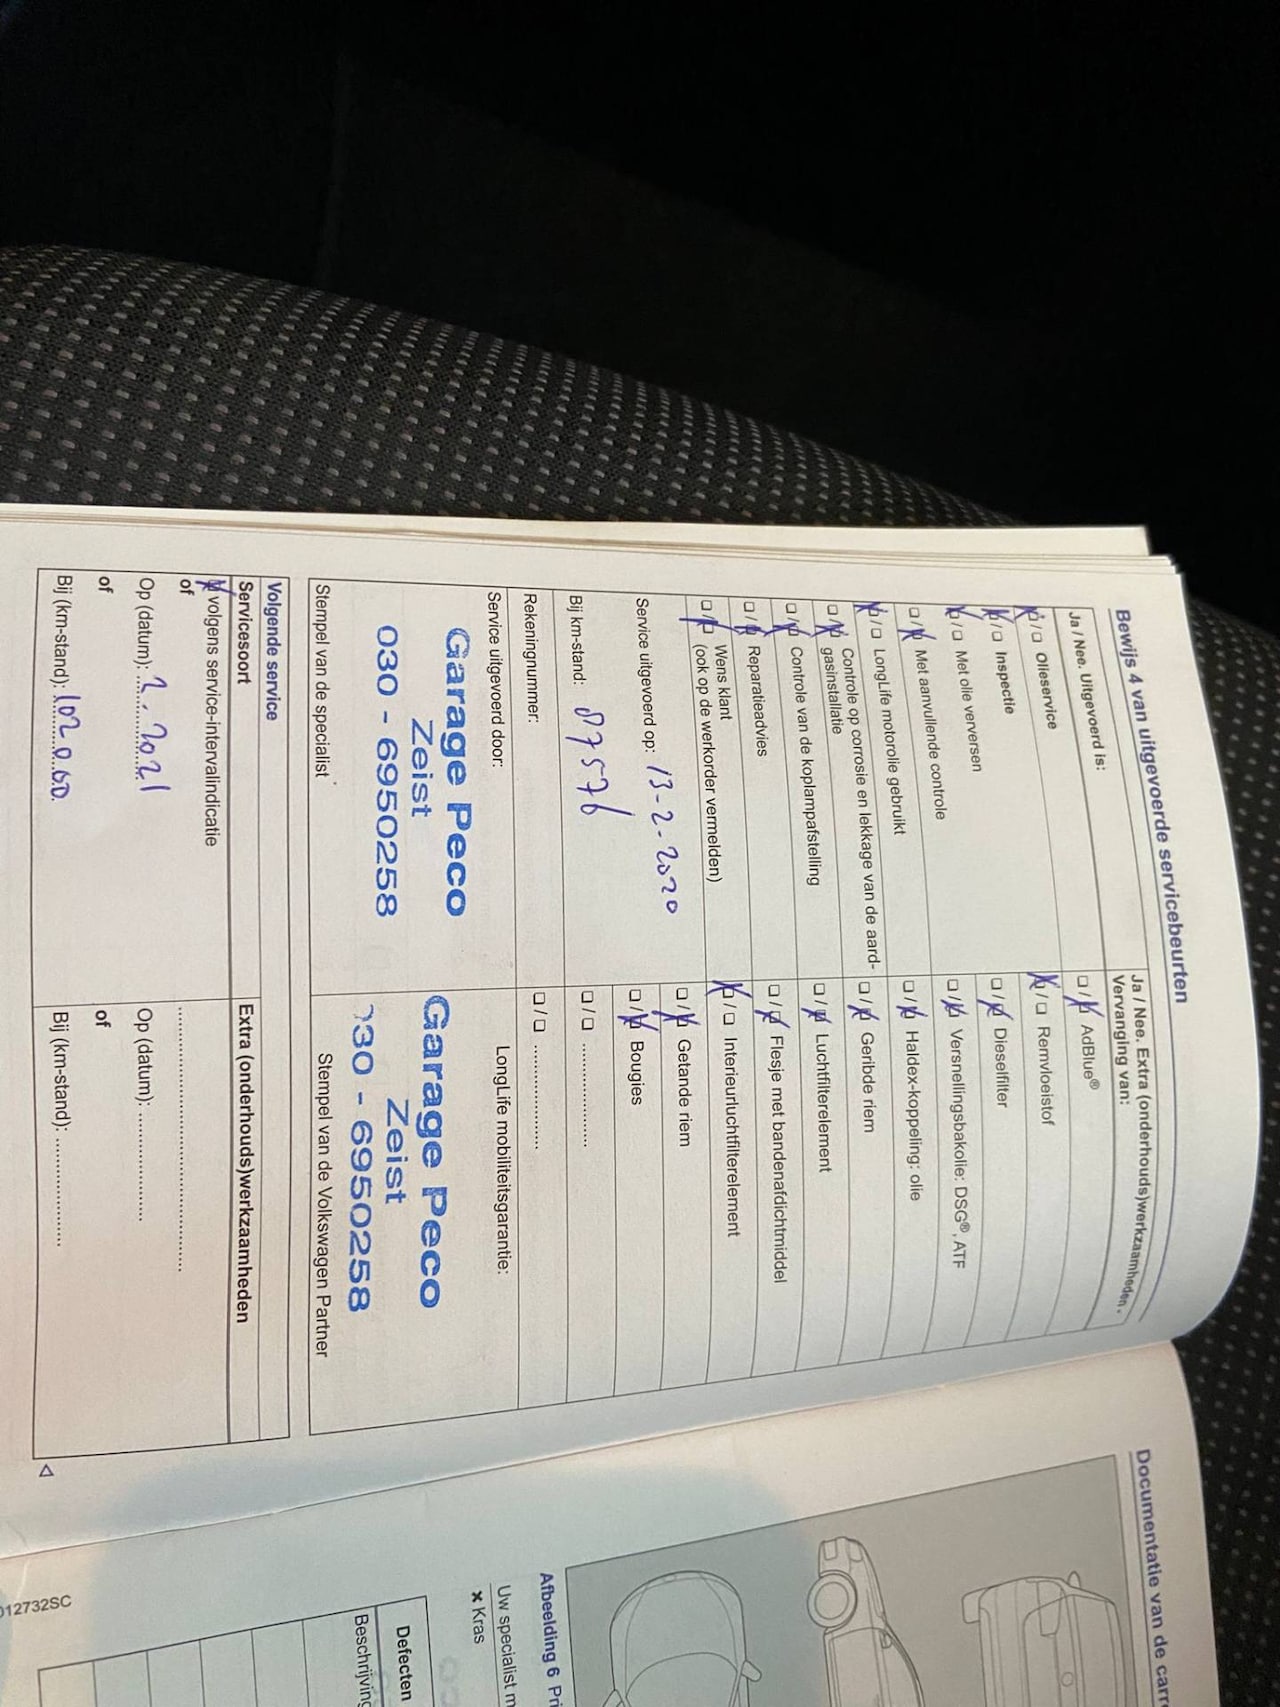 Bewijs 4 van uitgevoerde servicebeurten
Ja / Nee. Uitgevoerd is:
☒ / ☐ Olieservice
☒ / ☐ Inspectie
☒ / ☐ Met olie verversen
☐ / ☒ Met aanvullende controle
☒ / ☐ LongLife motorolie gebruikt
☐ / ☒ Controle op corrosie en lekkage van de aard-
gasinstallatie
☐ / ☒ Controle van de koplampafstelling
☐ / ☒ Reparatieadvies
☐ / ☒ Wens klant
(ook op de werkorder vermelden)
Service uitgevoerd op: 13-2-2020
Bij km-stand: 87576
Rekeningnummer:
Service uitgevoerd door:
Garage Peco
Zeist
030 - 6950258
Stempel van de specialist
Ja / Nee. Extra (onderhouds)werkzaamheden.
Vervanging van:
☐ / ☒ AdBlue®
☒ / ☐ Remvloeistof
☐ / ☒ Dieselfilter
☐ / ☒ Versnellingsbakolie: DSG®, ATF
☐ / ☒ Haldex-koppeling: olie
☐ / ☒ Geribde riem
☐ / ☒ Luchtfilterelement
☐ / ☒ Flesje met bandenafdichtmiddel
☒ / ☐ Interieurluchtfilterelement
☐ / ☒ Getande riem
☐ / ☒ Bougies
☐ / ☐ ................
☐ / ☐ ................
LongLife mobiliteitsgarantie:
Garage Peco
Zeist
030 - 6950258
Stempel van de Volkswagen Partner
Volgende service
Servicesoort
☒ volgens service-intervalindicatie
of
Op (datum): 2.2021
of
Bij (km-stand): 102000
Extra (onderhouds)werkzaamheden
........................................
Op (datum): ................
of
Bij (km-stand): ................
Documentatie van de carr
Afbeelding 6 Pri
Uw specialist m
× Kras
Defecten
Beschrijving
012732SC